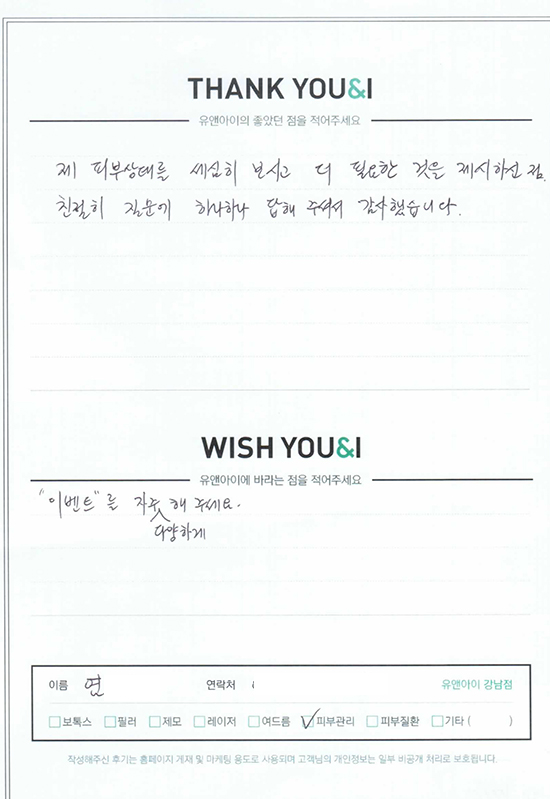 THANK YOU&I
유앤아이의 좋았던 점을 적어주세요
제 피부상태를 세심히 보시고 더 필요한 것을 제시하신 점.
친절히 질문에 하나하나 답해 주셔서 감사했습니다.
WISH YOU&I
유앤아이에 바라는 점을 적어주세요
"이벤트"를 자주 해 주세요.
다양하게
이름 염 연락처 유앤아이 강남점
보톡스 필러 제모 레이저 여드름 피부관리 피부질환 기타 ( )
작성해주신 후기는 홈페이지 게재 및 마케팅 용도로 사용되며 고객님의 개인정보는 일부 비공개 처리로 보호됩니다.